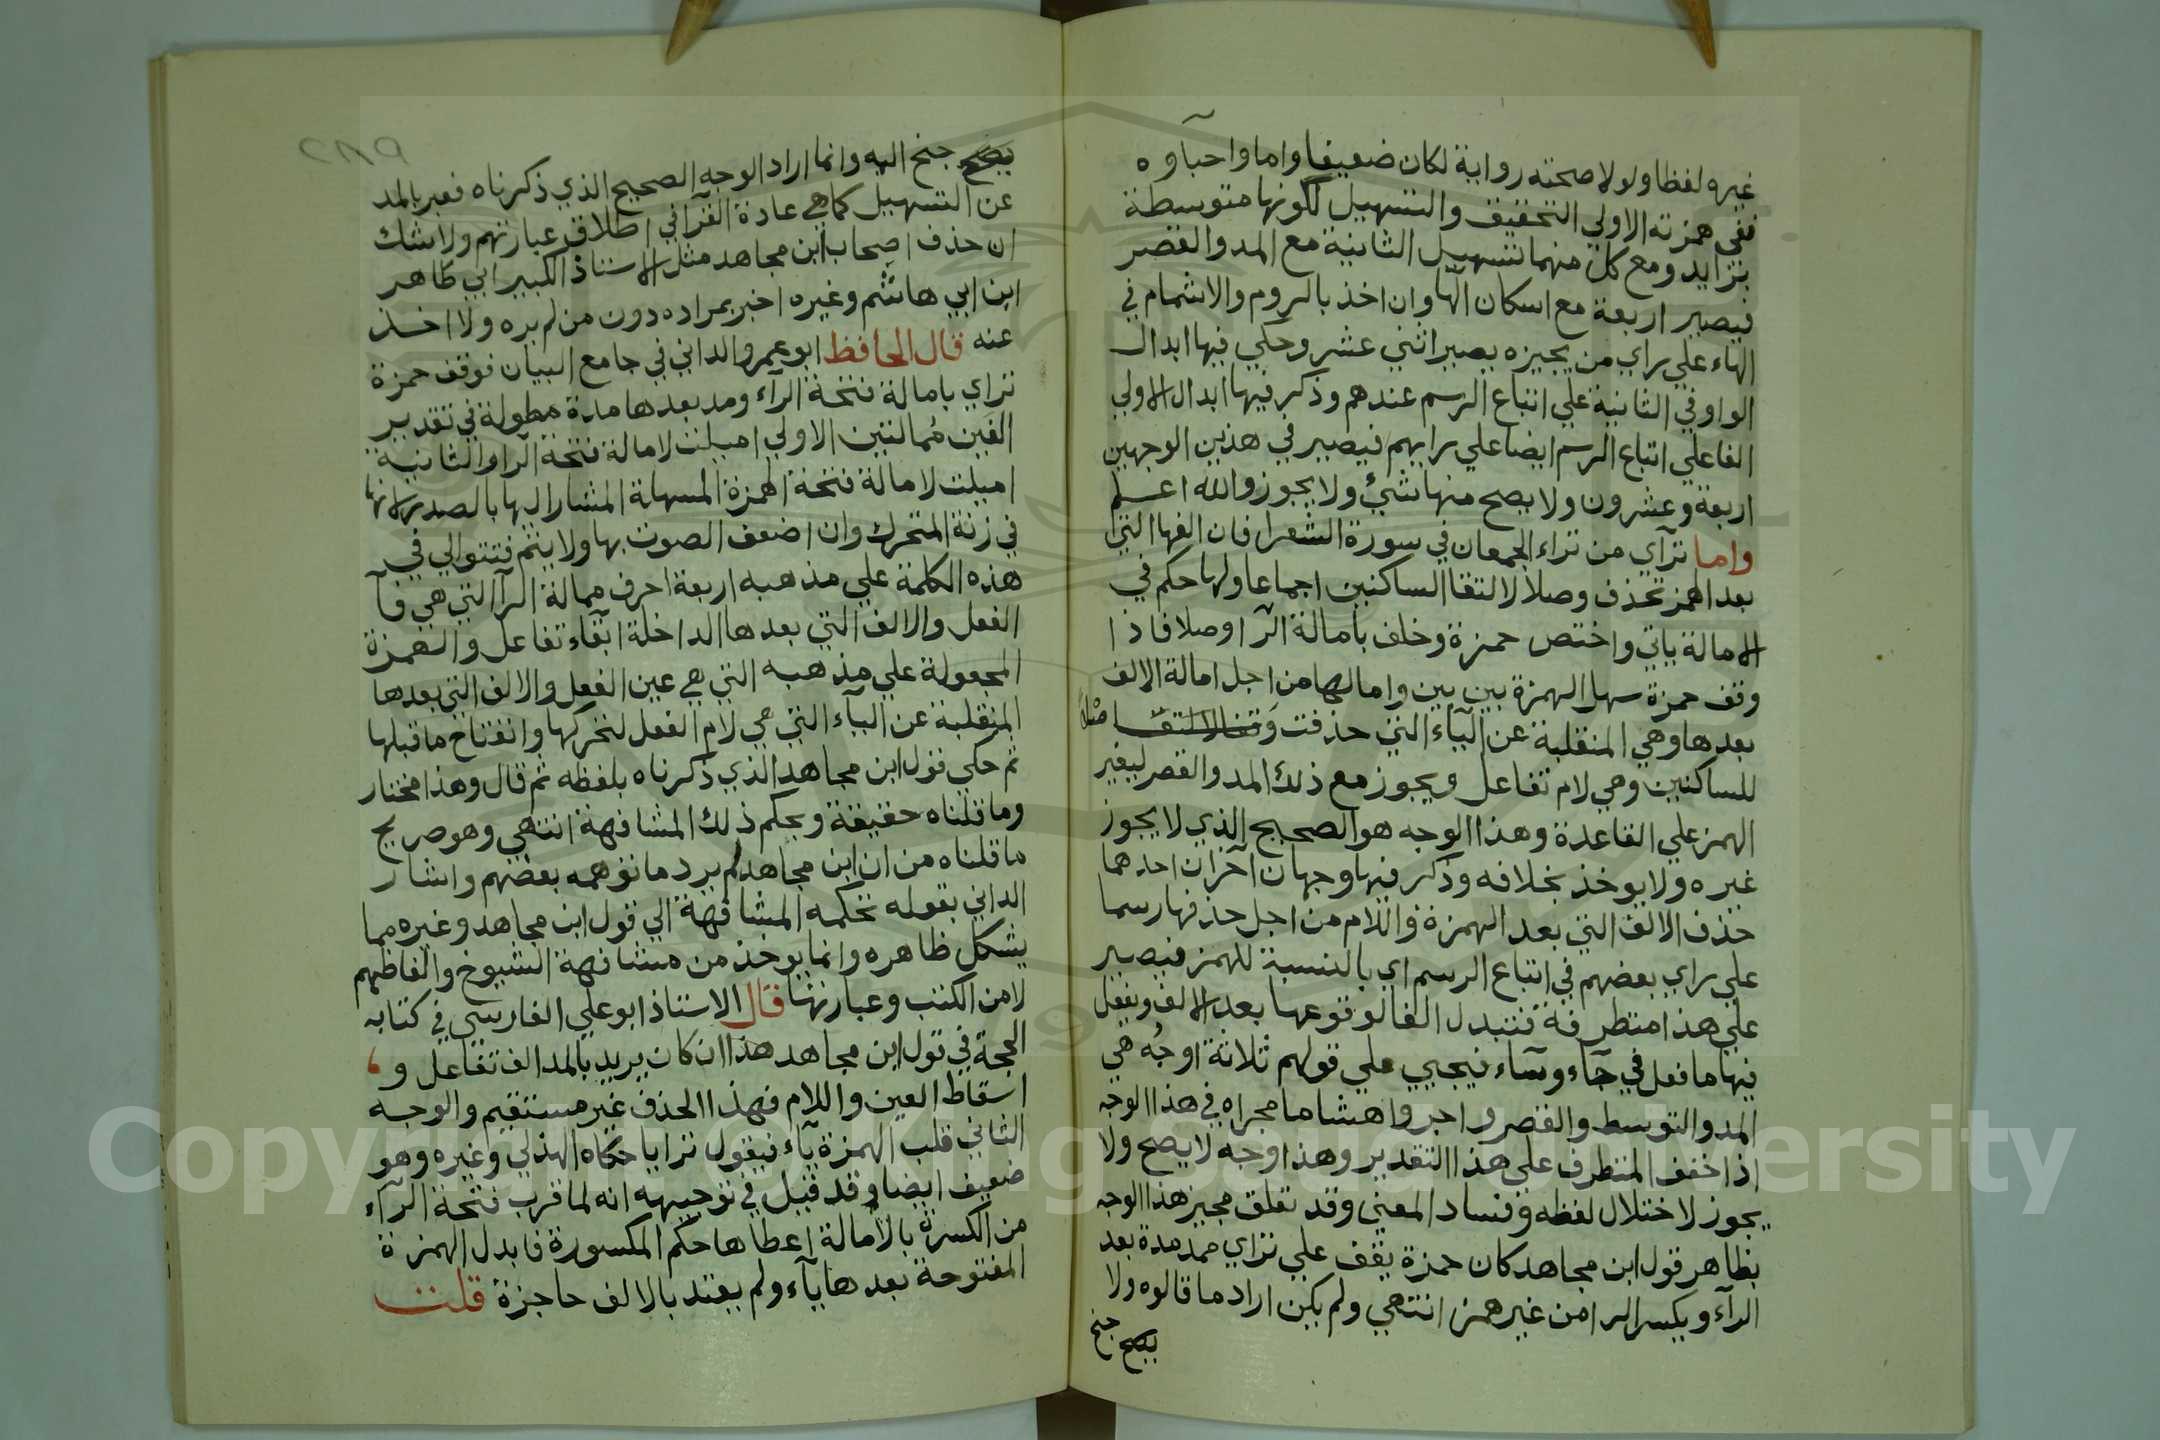 غيره لفظا ولولا صحته رواية لكان ضعيفا واما واحباوه
ففي همزته الاولي التحقيق والتسهيل لكونها متوسطة
بزايد ومع كل منهما تسهيل الثانية مع المد والقصر
فيصير اربعة مع اسكان الها وان اخذ بالروم والاشمام في
الهاء علي راي من يجيزه يصير اثني عشر وحكي فيها ابدال
الواو في الثانية علي اتباع الرسم عندهم وذكر فيها ابدال الاولي
الفا علي اتباع الرسم ايضا علي رايهم فيصير في هذين الوجهين
اربعة وعشرون ولا يصح منها شئ ولا يجوز والله اعلم
واما تراي من تراء الجمعان في سورة الشعرا فان الفها التي
بعد الهمز تحذف وصلا لالتقا الساكنين اجماعا ولها حكم في
الامالة ياتي واختص حمزة وخلف بامالة الرا وصلا فاذا
وقف حمزة سهل الهمزة بين بين وامالها من اجل امالة الالف
بعدها وهي المنقلبة عن الياء التي حذفت وقفا لالتقا
للساكنين وهي لام تفاعل ويجوز مع ذلك المد والقصر لتغير
الهمز علي القاعدة وهذا الوجه هو الصحيح الذي لا يجوز
غيره ولا يوخذ بخلافه وذكر فيها وجهان آخران احدهما
حذف الالف التي بعد الهمزة واللام من اجل حذفها رسما
علي راي بعضهم في اتباع الرسم اي بالنسبة للهمز فيصير
علي هذا متطرفة فتبدل الفا لوقوعها بعد الالف ويفعل
فيها ما فعل في جآء وشآء فيجيي علي قولهم ثلاثة اوجُه هي
المد والتوسط والقصر واجروا هشاما مجراه في هذا الوجه
اذا خفف المتطرف علي هذا التقدير وهذا وجه لا يصح ولا
يجوز لاختلال لفظه وفساد المعني وقد تعلق مجيز هذا الوجه
بظاهر قول ابن مجاهد كان حمزة يقف علي تراي يمد مدة بعد
الرآء ويكسر الرا من غير همز انتهي ولم يكن اراد ما قالوه ولا
جنح
يصح جنح اليه وانما اراد الوجه الصحيح الذي ذكرناه فعبر بالمد
عن التسهيل كما هي عادة القرآ في اطلاق عبارتهم ولا شك
ان حذف اصحاب ابن مجاهد مثل الاستاذ الكبير ابي طاهر
ابن ابي هاشم وغيره اخبر بمراده دون من لم يره ولا اخذ
عنه قال الحافظ ابو عمرو الداني في جامع البيان فوقف حمزة
تراي بامالة فتحة الرآء ومد بعدها مدة مطولة في تقدير
الفين مُمالتين الاولي اميلت لامالة فتحة الرا والثانية
اميلت لامالة فتحة الهمزة المسهلة المشار اليها بالصدر لانها
في زنة المتحرك وان اضعف الصوت بها ولا يتم فتتوالي في
هذه الكلمة علي مذهبه اربعة احرف ممالة الرآ التي هي فآ
الفعل والالف التي بعدها الداخلة لبناء تفاعل والهمزة
المجعولة علي مذهبه التي هي عين الفعل والالف التي بعدها
المنقلبة عن الياء التي هي لام الفعل لتحركها وانفتاح ما قبلها
ثم حكي قول ابن مجاهد الذي ذكرناه بلفظه ثم قال وهذا مختار
وما قلناه حقيقة ويحكم ذلك المشافهة انتهي وهو صريح
ما قلناه من ان ابن مجاهد لم يرد ما توهمه بعضهم واشار
الداني بقوله تحكمه المشافهة الي قول ابن مجاهد وغيره مما
يشكل ظاهره وانما يوخذ من مشافهة الشيوخ والفاظهم
لا من الكتب وعبارتها قال الاستاذ ابو علي الفارسي في كتابه
الحجة في قول ابن مجاهد هذا ان كان يريد بالمد الف تفاعل و
اسقاط العين واللام فهذا الحذف غير مستقيم والوجه
الثاني قلب الهمزة يآء فيقول ترايا حكاه الهذلي وغيره وهو
ضعيف ايضا وقد قيل في توجيهه انه لما قرب فتحة الرآء
من الكسرة بالامالة اعطاها حكم المكسورة فابدل الهمزة
المفتوحة بعدها يآء ولم يعتد بالالف حاجزة قلت
Copyright © King Saud University